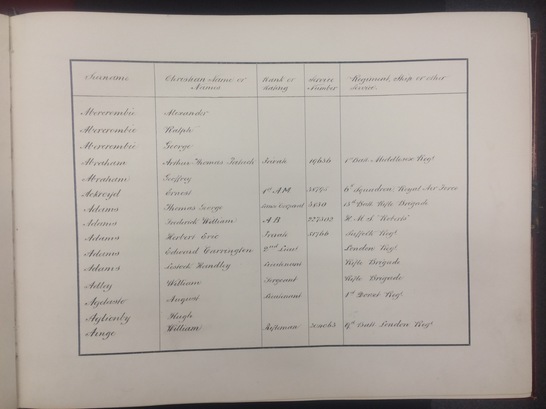 Surname Christian Name or Names Rank or Rating Service Number Regiment, Ship or other Service.
Abercrombie Alexander
Abercrombie Ralph
Abercrombie George
Abraham Arthur Thomas Private 1st Batt. Middlesex Regt
Abraham Geoffrey
Ackroyd Ernest 1st AM 6th Squadron, Royal Air Force
Adams Thomas George Lance Corporal 13th Batt. Rifle Brigade
Adams Frederick William A B 227302 H.M.S.
Adams Herbert Eric Private Suffolk Regt
Adams Edward Carrington 2nd Lieut London Regt
Adams Handley Lieutenant Rifle Brigade
Adley William Sergeant Rifle Brigade
August Lieutenant 1st Dorset Regt
Aglionby Hugh
Ainge William Rifleman 9th Batt London Regt